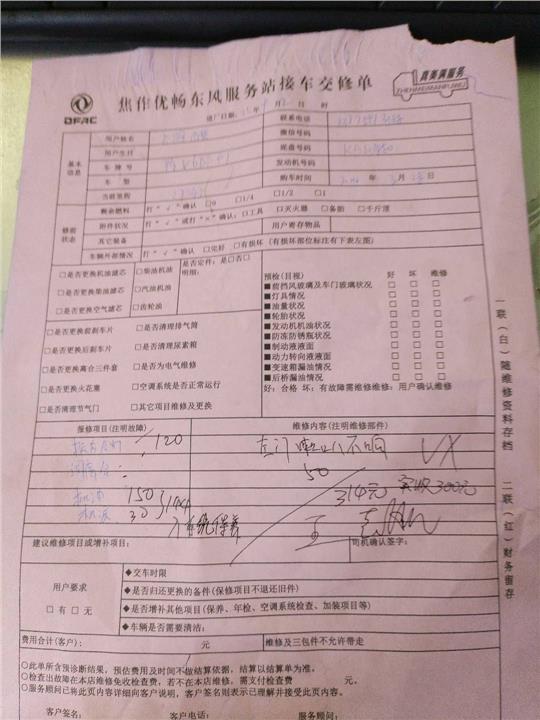 DFAC
焦作优畅东风服务站接车交修单
真美满服务
ZHENMEIMANFUWU
进厂日期: 年 月 日 时
基本信息
用户姓名
联系电话
用户生日
微信号码
车牌号
底盘号码
车型
发动机号码
当前里程
购车时间 年 月 日
修前状态
剩余燃料 打“√”确认 □0 □1/4 □1/2 □1
附件状况 打“√”或打“×”确认: □工具 □灭火器 □备胎 □千斤顶
其它装备
用户寄存物品
车辆外部情况 打“√”确认 □完好 □有损坏 (有损坏部位标注有下表左图)
□是否更换机油滤芯 □柴油机油 是否定件: 是□否□
明细:
□是否更换柴油滤芯 □汽油机油
□是否更换空气滤芯 □齿轮油
□是否更换前刹车片 □是否清理排气筒
□是否更换后刹车片 □是否清理尿素箱
□是否更换离合三件套 □是否为电气维修
□是否更换火花塞 □空调系统是否正常运行
□是否清理节气门 □其它项目维修及更换
预检(目视) 好 坏 维修
■前挡风玻璃及车门玻璃状况 □ □ □
■灯具情况 □ □ □
■油量状况 □ □ □
■轮胎状况 □ □ □
■发动机机油状况 □ □ □
■防冻防锈瓶状况 □ □ □
■制动液液面 □ □ □
■动力转向液液面 □ □ □
■变速箱漏油情况 □ □ □
■后桥漏油情况 □ □ □
好: 合格 坏: 有故障需维修维修: 用户确认维修
一联(白)随维修资料存档
二联(红)财务留存
报修项目(注明故障)
维修内容(注明维修部件)
120
左门喇叭不响
50
机油 150
314元 实收300元
30
建议维修项目或增补项目:
司机确认签字:
用户要求
□有 □无
◆交车时限
◆是否归还更换的备件(保修项目不退还旧件)
◆是否增补其他项目(保养、年检、空调系统检查、加装项目等)
◆车辆是否需要清洁:
费用合计(客户): 元
维修及三包件不允许带走
○此单所含预诊断结果,预估费用及时间不做结算依据,结算以结算单为准。
○检查出故障在本店维修免收检查费,若不在本店维修,需支付检查费 元。
○服务顾问已将此页内容详细向客户说明,客户签名则表示已理解并接受此页内容。
客户签名:
客户电话:
服务顾问: